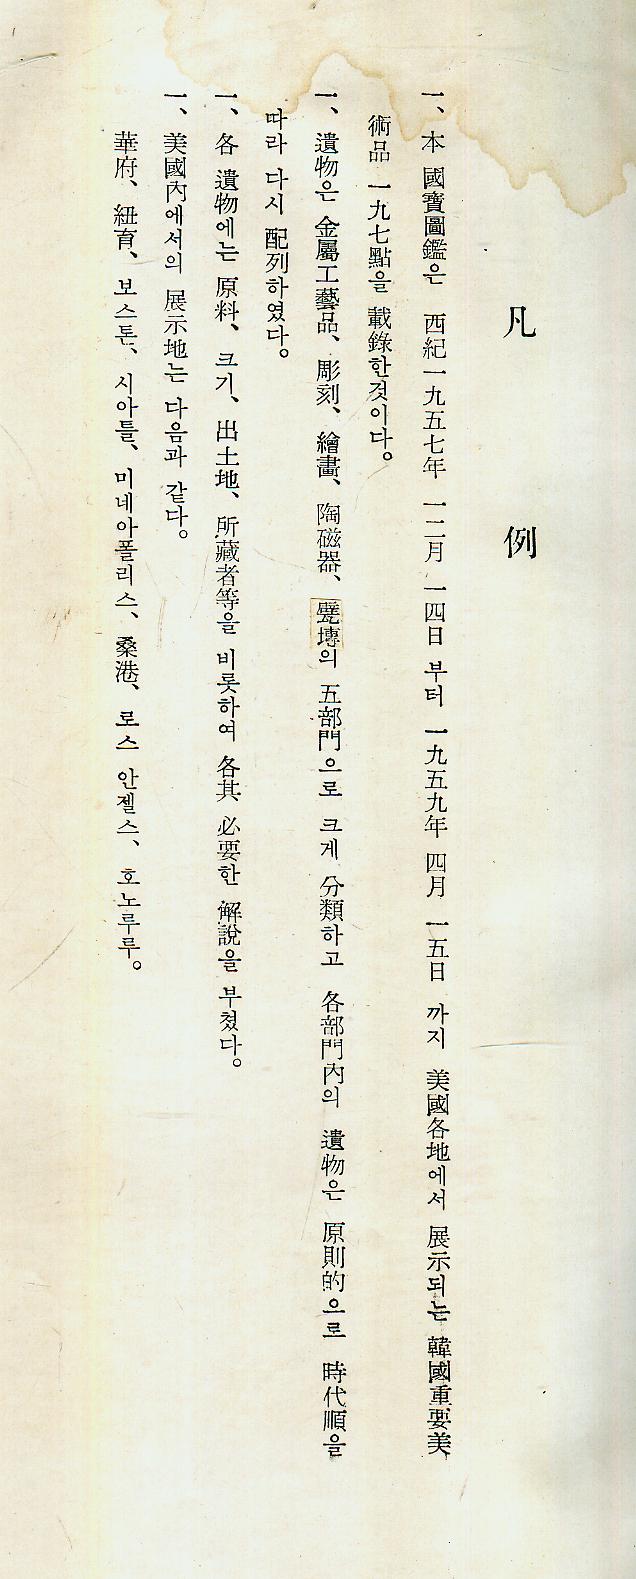 凡例
一、本 國寶圖鑑은 西紀一九五七年 一二月 一四日 부터 一九五九年 四月 一五日 까지 美國各地에서 展示되는 韓國重要美
術品 一九七點을 載錄한것이다。
一、遺物은 金屬工藝品、彫刻、繪畫、陶磁器、甓塼의 五部門으로 크게 分類하고 各部門內의 遺物은 原則的으로 時代順을
따라 다시 配列하였다。
一、各 遺物에는 原料、크기、出土地、所藏者等을 비롯하여 各其 必要한 解說을 부쳤다。
一、美國內에서의 展示地는 다음과 같다。
華府、紐育、보스톤、시아틀、미네아폴리스、桑港、로스 안젤스、호노루루。